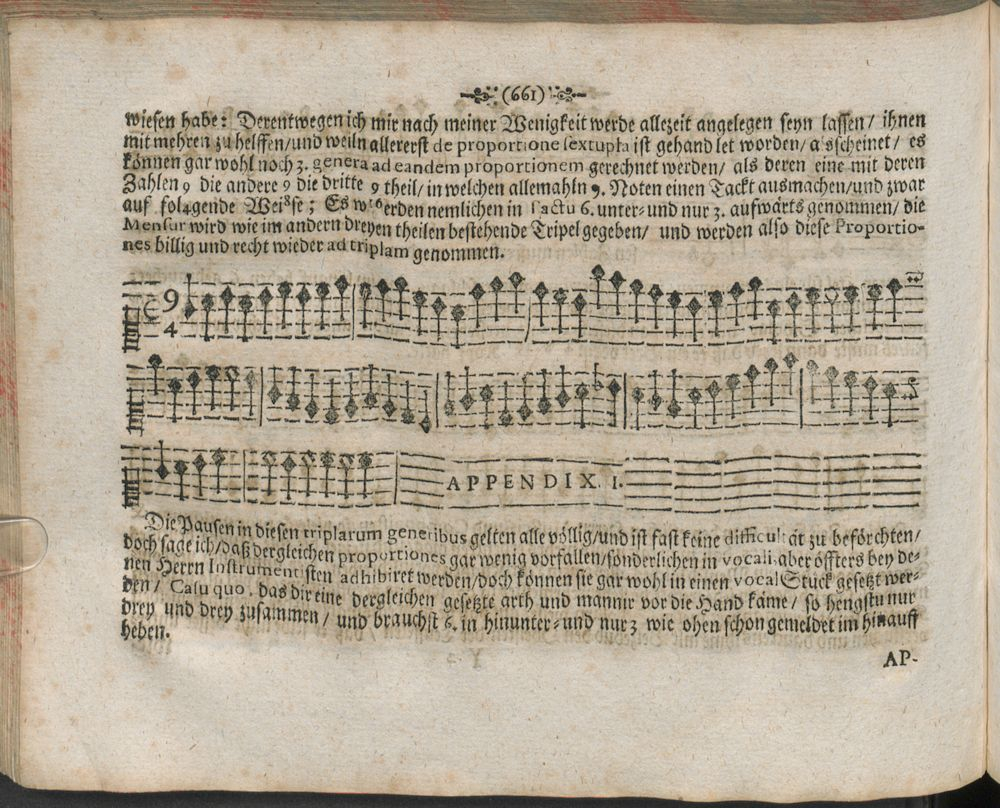 (661)
wiesen habe: Derentwegen ich mir nach meiner Wenigkeit werde allezeit angelegen seyn lassen/ ihnen
mit mehren zu helffen/und weiln allererst de proportione sextupla ist gehandlet worden/ alsscheinet/ es
können gar wohl noch 3. genera ad eandem proportionem gerechnet werden/ als deren eine mit deren
Zahlen 9 die andere 9 die dritte 9 theil/ in welchen allemahln 9. Noten einen Tackt ausmachen/und zwar
auf fol4gende Wei8se; Es w16erden nemlichen in Tactu 6. unter- und nur 3. aufwärts genommen/ die
Mensur wird wie im andern dreyen theilen bestehende Tripel gegeben/ und werden also diese Proportio-
nes billig und recht wieder ad triplam genommen.
9
4
APPENDIX. I.
Die Pausen in diesen triplarum generibus gelten alle völlig/und ist fast keine difficultät zu beförchten/
doch sage ich/daß dergleichen proportiones gar wenig vorfallen/sonderlichen in vocali, aber öffters bey de-
nen Herrn Instrumentisten adhibiret werden/doch können sie gar wohl in einen vocal Stück gesetzt wer-
den/ Casu quo, das dir eine dergleichen gesetzte arth und mannir vor die Hand käme/ so hengstu nur
drey und drey zusammen/ und brauchst 6. in hinunter- und nur 3 wie ohen schon gemeldet im hinauff
heben.
AP-